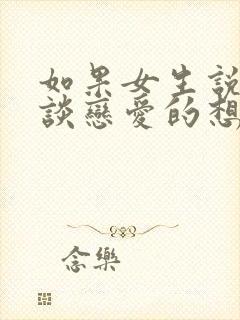 如果女生說
談戀愛的想
念樂